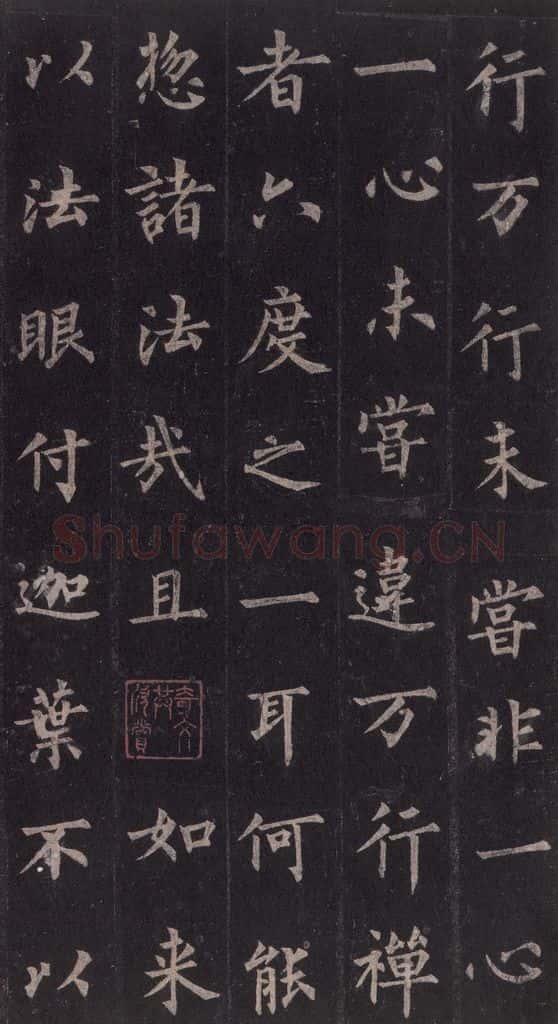 行万行未嘗非一心
一心未嘗違万行禪
者六度之一耳何能
揔諸法㢤且如来
以法眼付迦葉不以
奇文共欣賞
Shufawang.CN